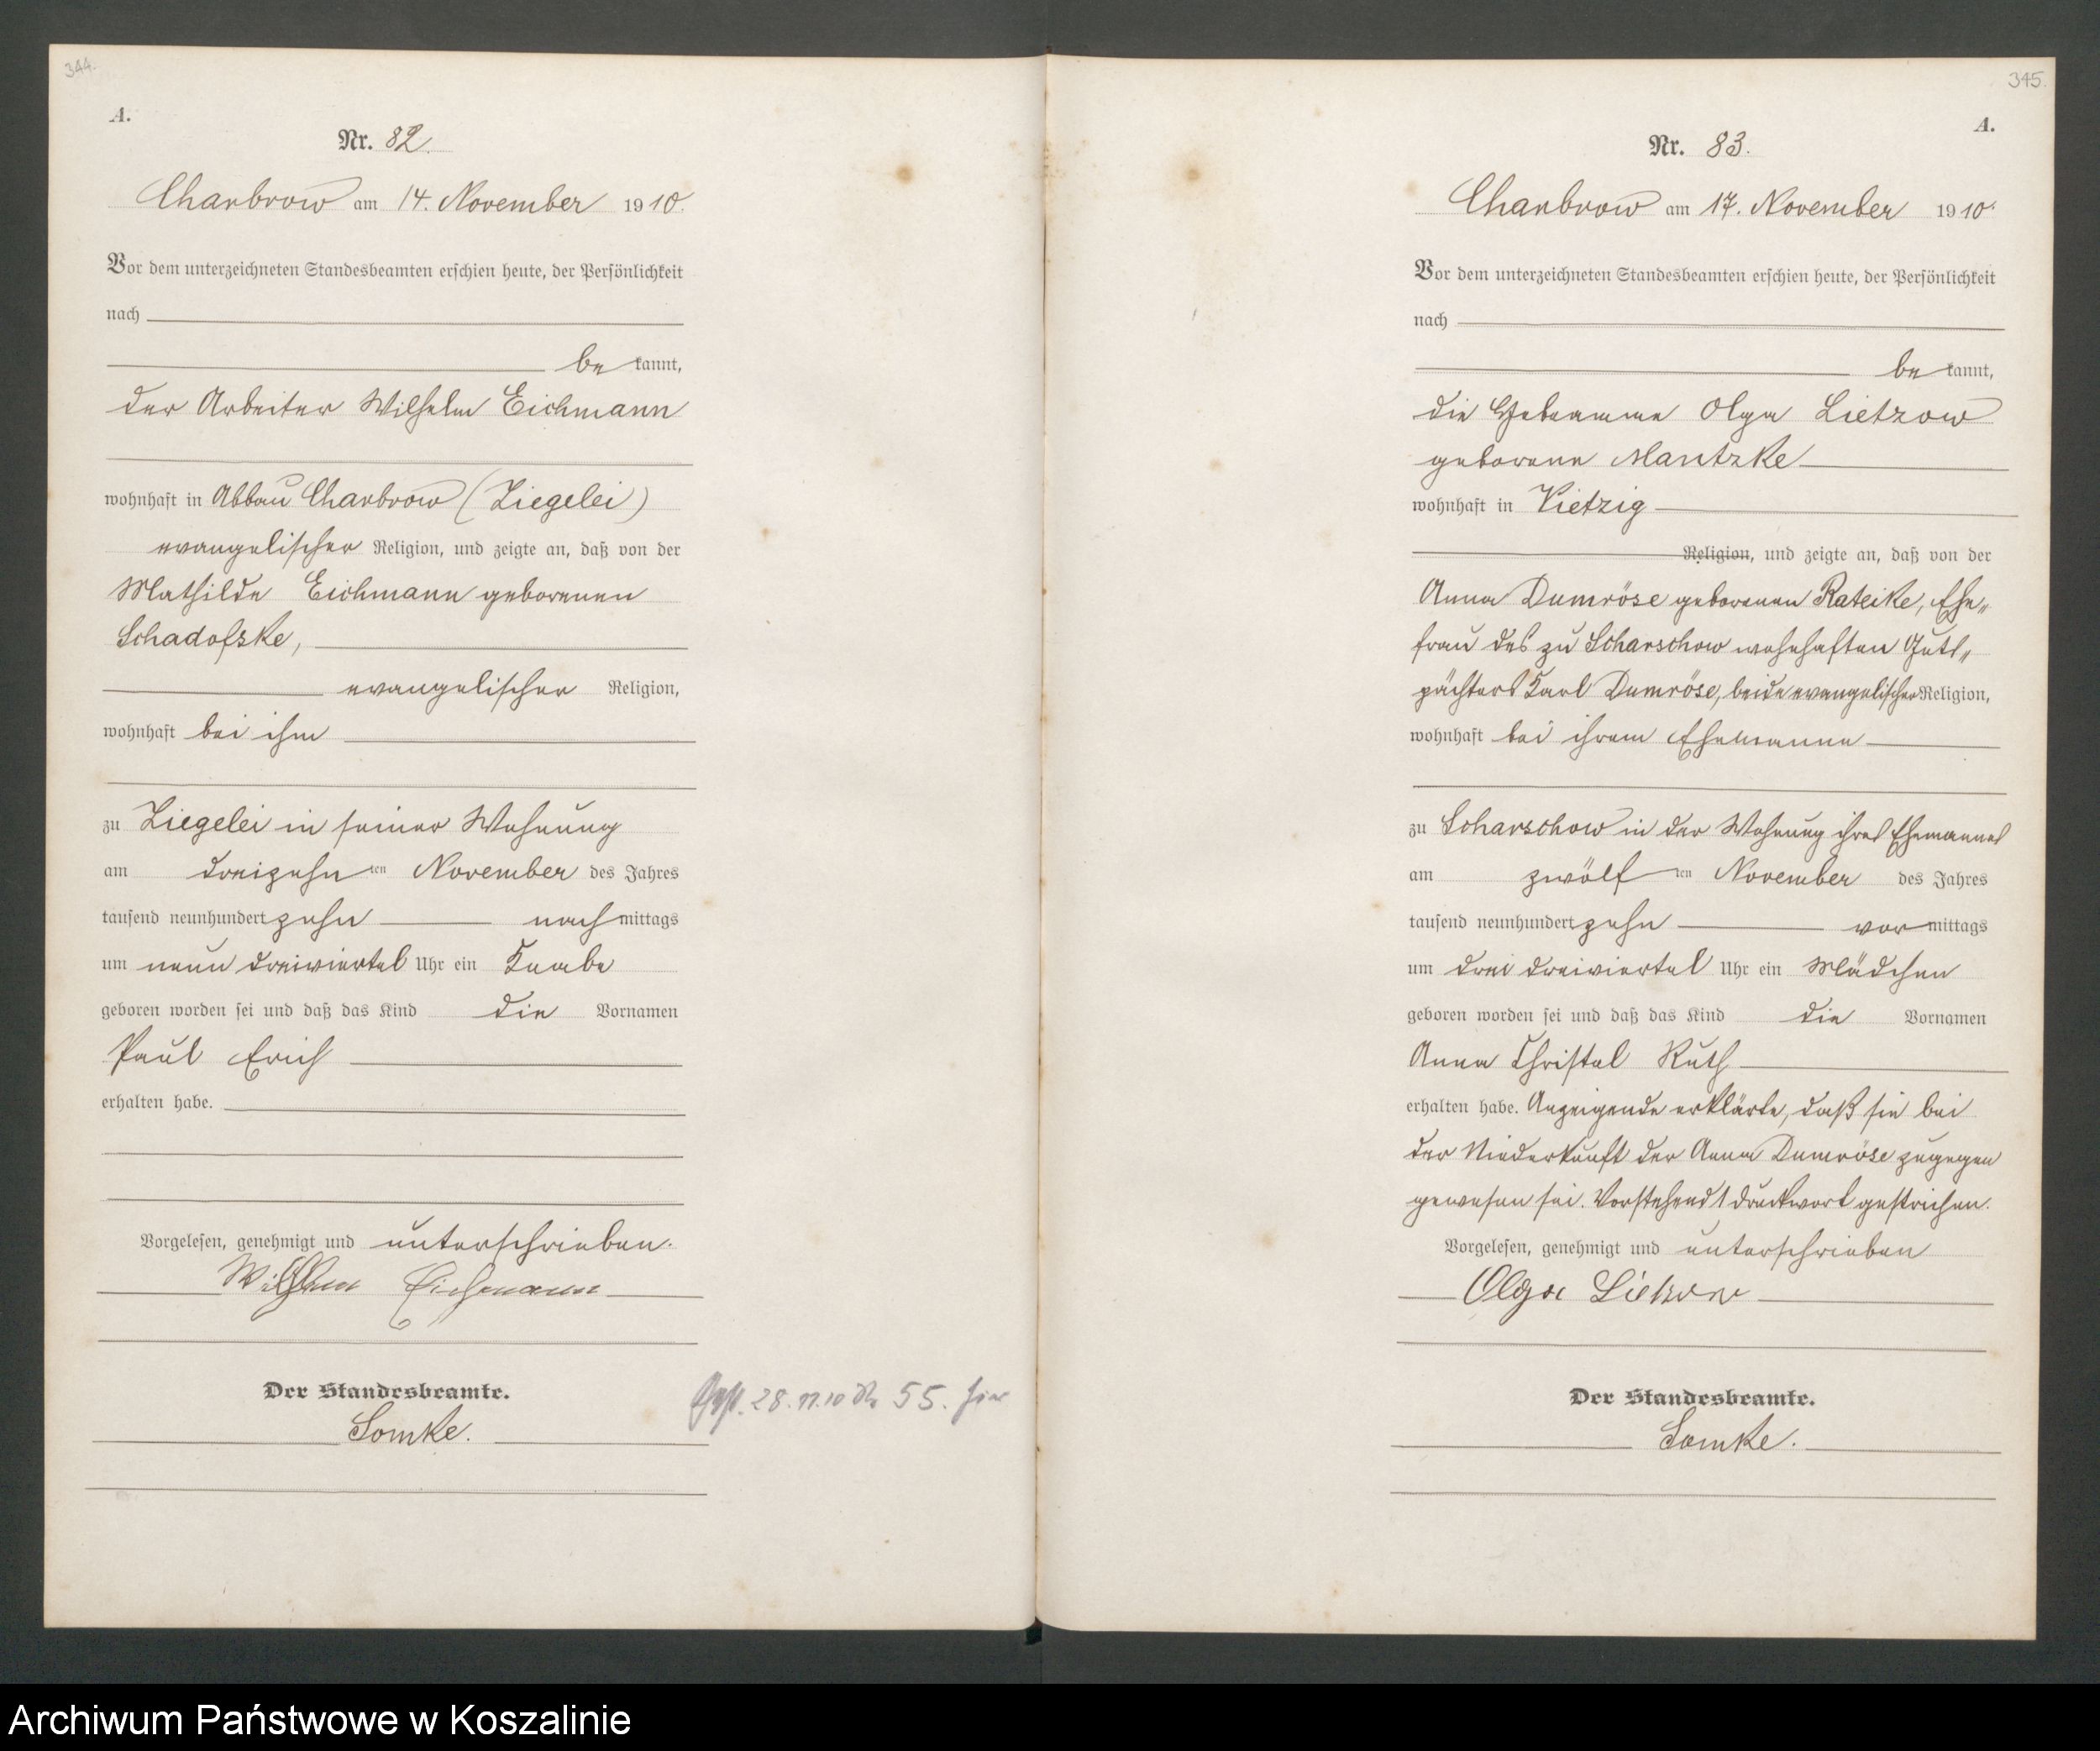 344.
A.
Nr. 82.
Charbrow am 14. November 1910.
Vor dem unterzeichneten Standesbeamten erschien heute, der Persönlichkeit
nach
be kannt,
der Arbeiter Wilhelm Eichmann
wohnhaft in Abbau Charbrow (Ziegelei)
evangelischer Religion, und zeigte an, daß von der
Mathilde Eichmann geborenen
Schadofske,
evangelischer Religion,
wohnhaft bei ihm
zu Ziegelei in seiner Wohnung
am dreizehn ten November des Jahres
tausend neunhundert zehn nach mittags
um neun dreiviertel Uhr ein Knabe
geboren worden sei und daß das Kind die Vornamen
Paul Erich
erhalten habe.
Vorgelesen, genehmigt und unterschrieben.
Wilhelm Eichmann
Der Standesbeamte.
Somke.
Gest. 28.11.10 Nr. 55. hier
345.
A.
Nr. 83.
Charbrow am 17. November 1910.
Vor dem unterzeichneten Standesbeamten erschien heute, der Persönlichkeit
nach
be kannt,
die Hebeamme Olga Lietzow
geborene Mantzke
wohnhaft in Vietzig
Religion, und zeigte an, daß von der
Anna Dumröse geborenen Rateike, Ehe„
frau des zu Scharschow wohnhaften Guts„
pächters Karl Dumröse, beide evangelischer Religion,
wohnhaft bei ihrem Ehemanne
zu Scharschow in der Wohnung ihres Ehemannes
am zwölf ten November des Jahres
tausend neunhundert zehn vor mittags
um drei dreiviertel Uhr ein Mädchen
geboren worden sei und daß das Kind die Vornamen
Anna Christel Ruth
erhalten habe. Anzeigende erklärte, daß sie bei
der Niederkunft der Anna Dumröse zugegen
gewesen sei. Vorstehend 1 Druckwort gestrichen.
Vorgelesen, genehmigt und unterschrieben
Olga Lietzow
Der Standesbeamte.
Somke.
Archiwum Państwowe w Koszalinie